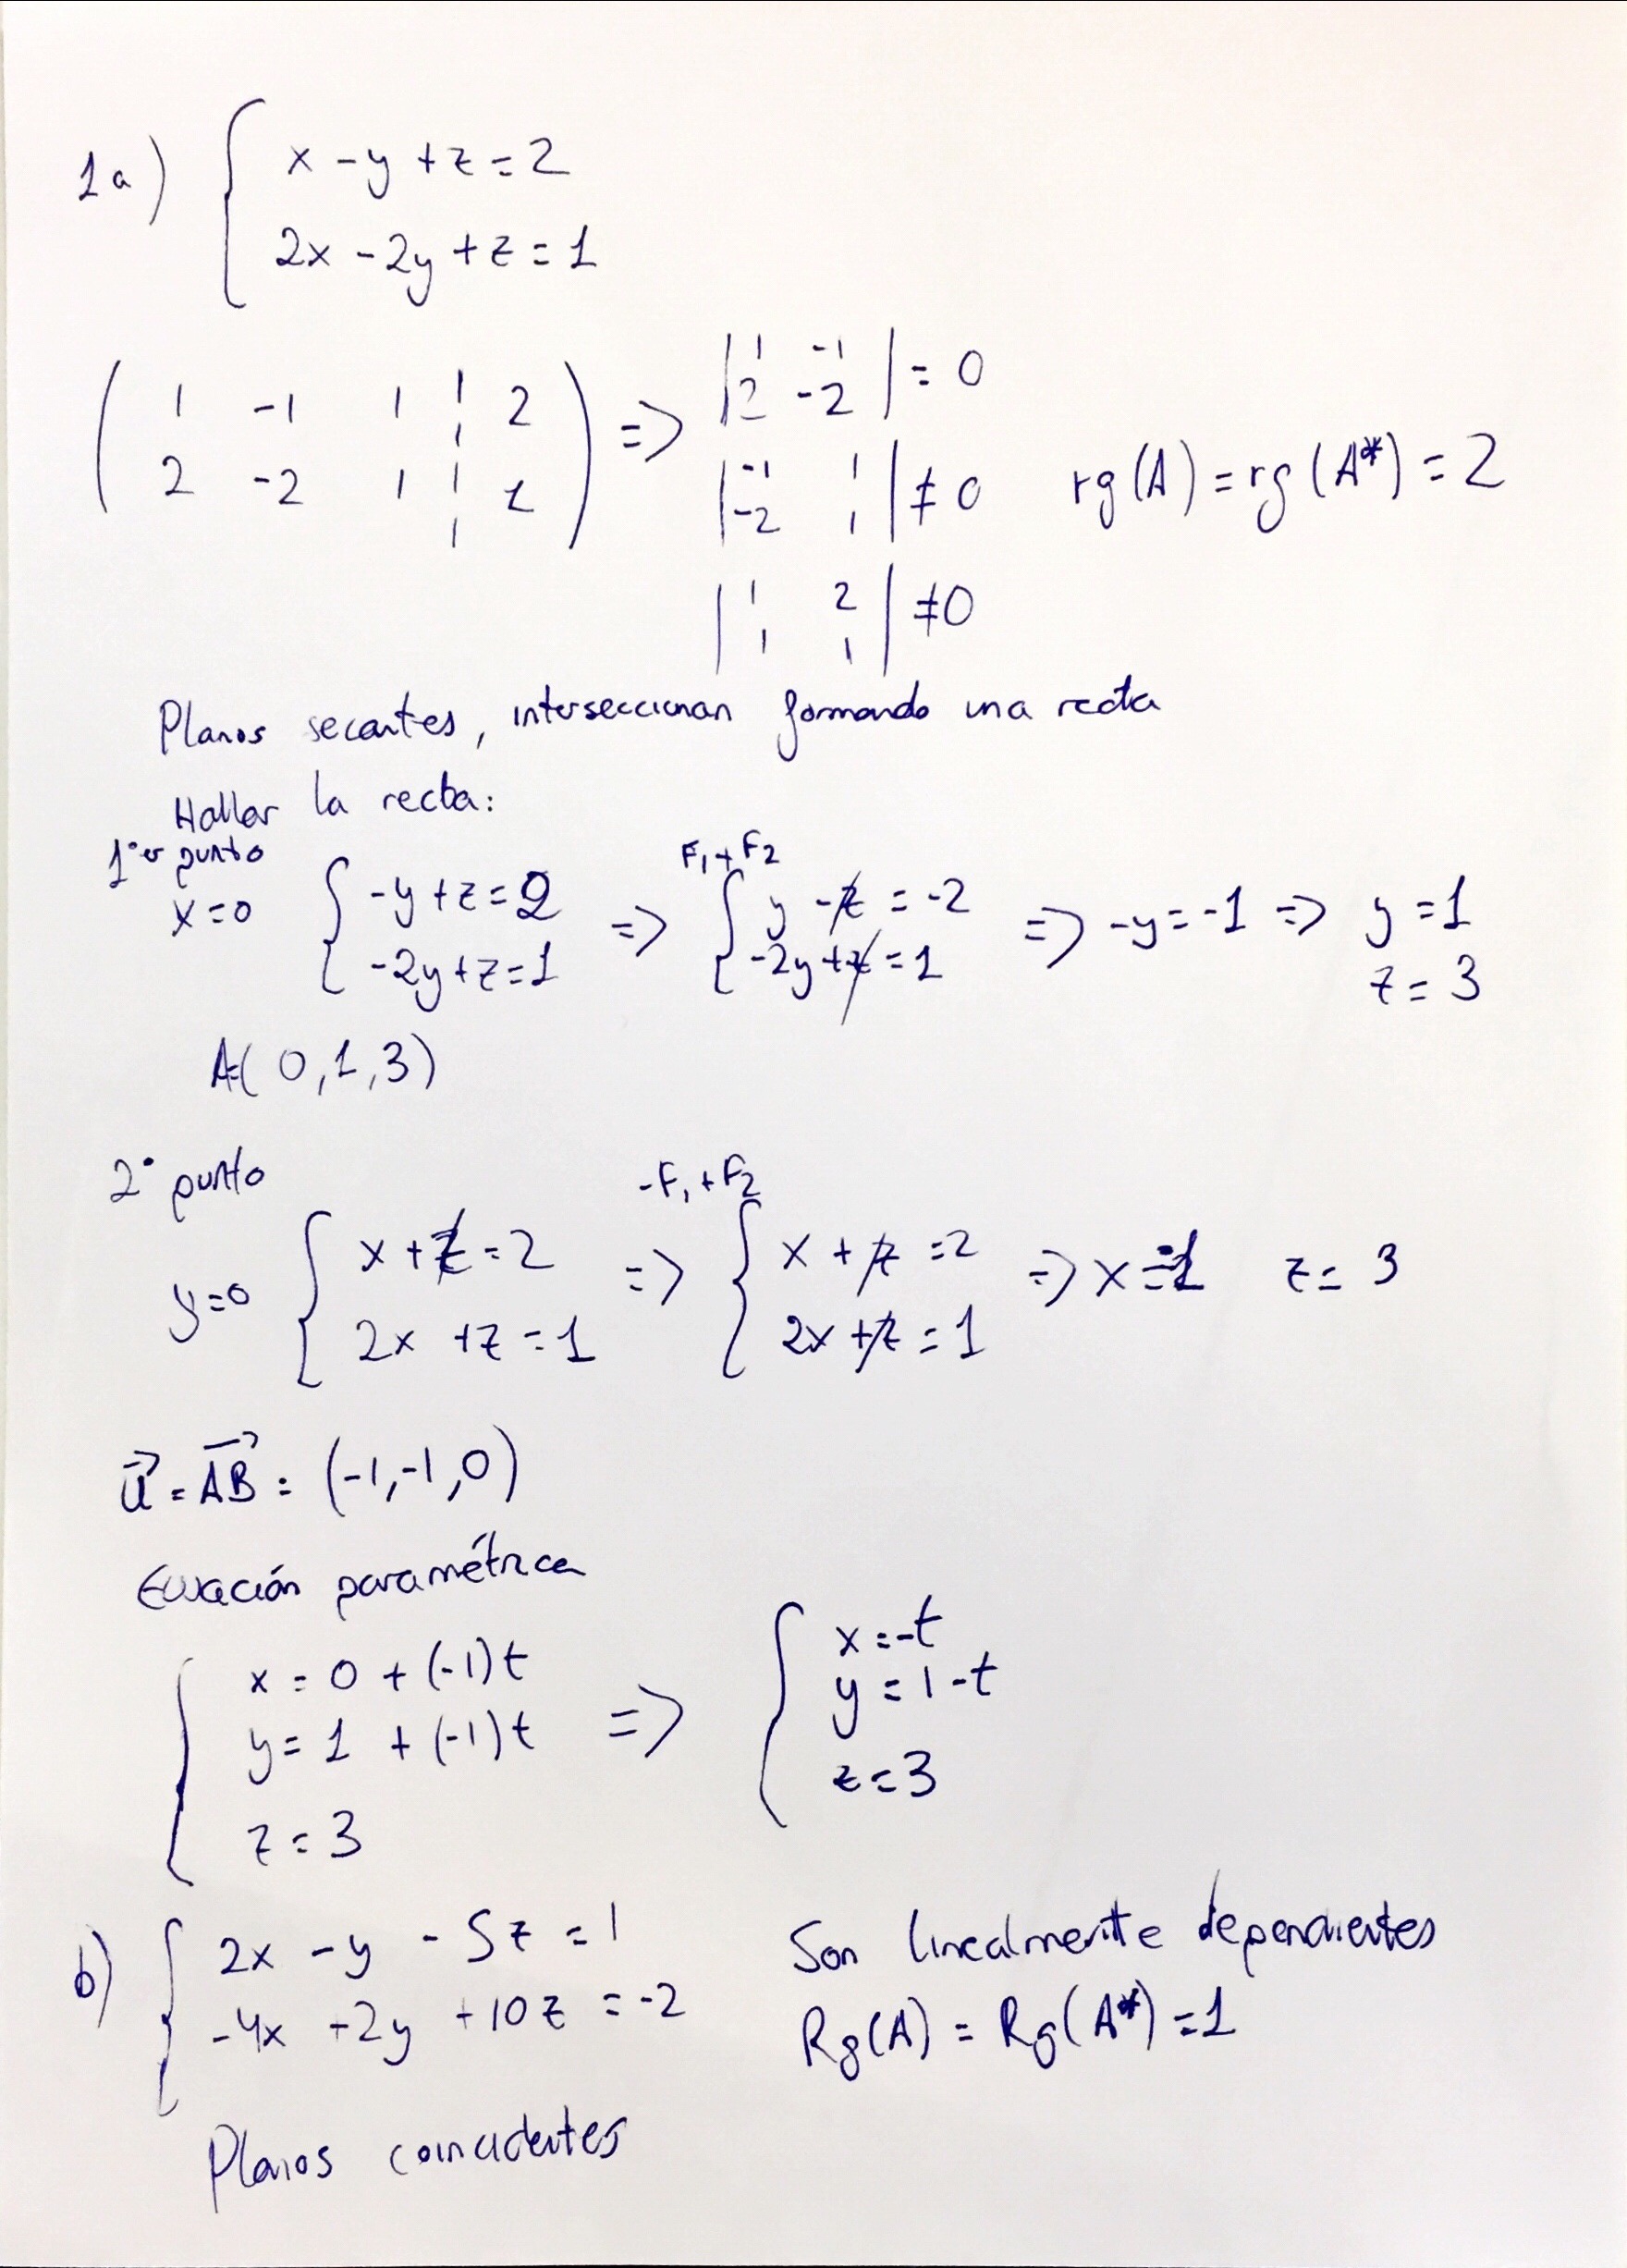 1a) { x - y + z = 2
2x - 2y + z = 1
( 1 -1 1 ¦ 2
2 -2 1 ¦ 1 ) => | 1 -1
2 -2 | = 0
| -1 1
-2 1 | ≠ 0 rg(A) = rg(A*) = 2
| 1 2
1 1 | ≠ 0
Planos secantes, interseccionan formando una recta
Hallar la recta:
1er punto
x = 0 { -y + z = 2
-2y + z = 1 => F1 + F2 { y - z = -2
-2y + z = 1 => -y = -1 => y = 1
z = 3
A( 0, 1, 3)
2º punto
y = 0 { x + z = 2
2x + z = 1 => -F1 + F2 { x + z = 2
2x + z = 1 => x = -1 z = 3
u = AB = (-1, -1, 0)
Ecuación paramétrica
{ x = 0 + (-1)t
y = 1 + (-1)t
z = 3 => { x = -t
y = 1 - t
z = 3
b) { 2x - y - 5z = 1
-4x + 2y + 10z = -2
Son linealmente dependientes
Rg(A) = Rg(A*) = 1
Planos coincidentes